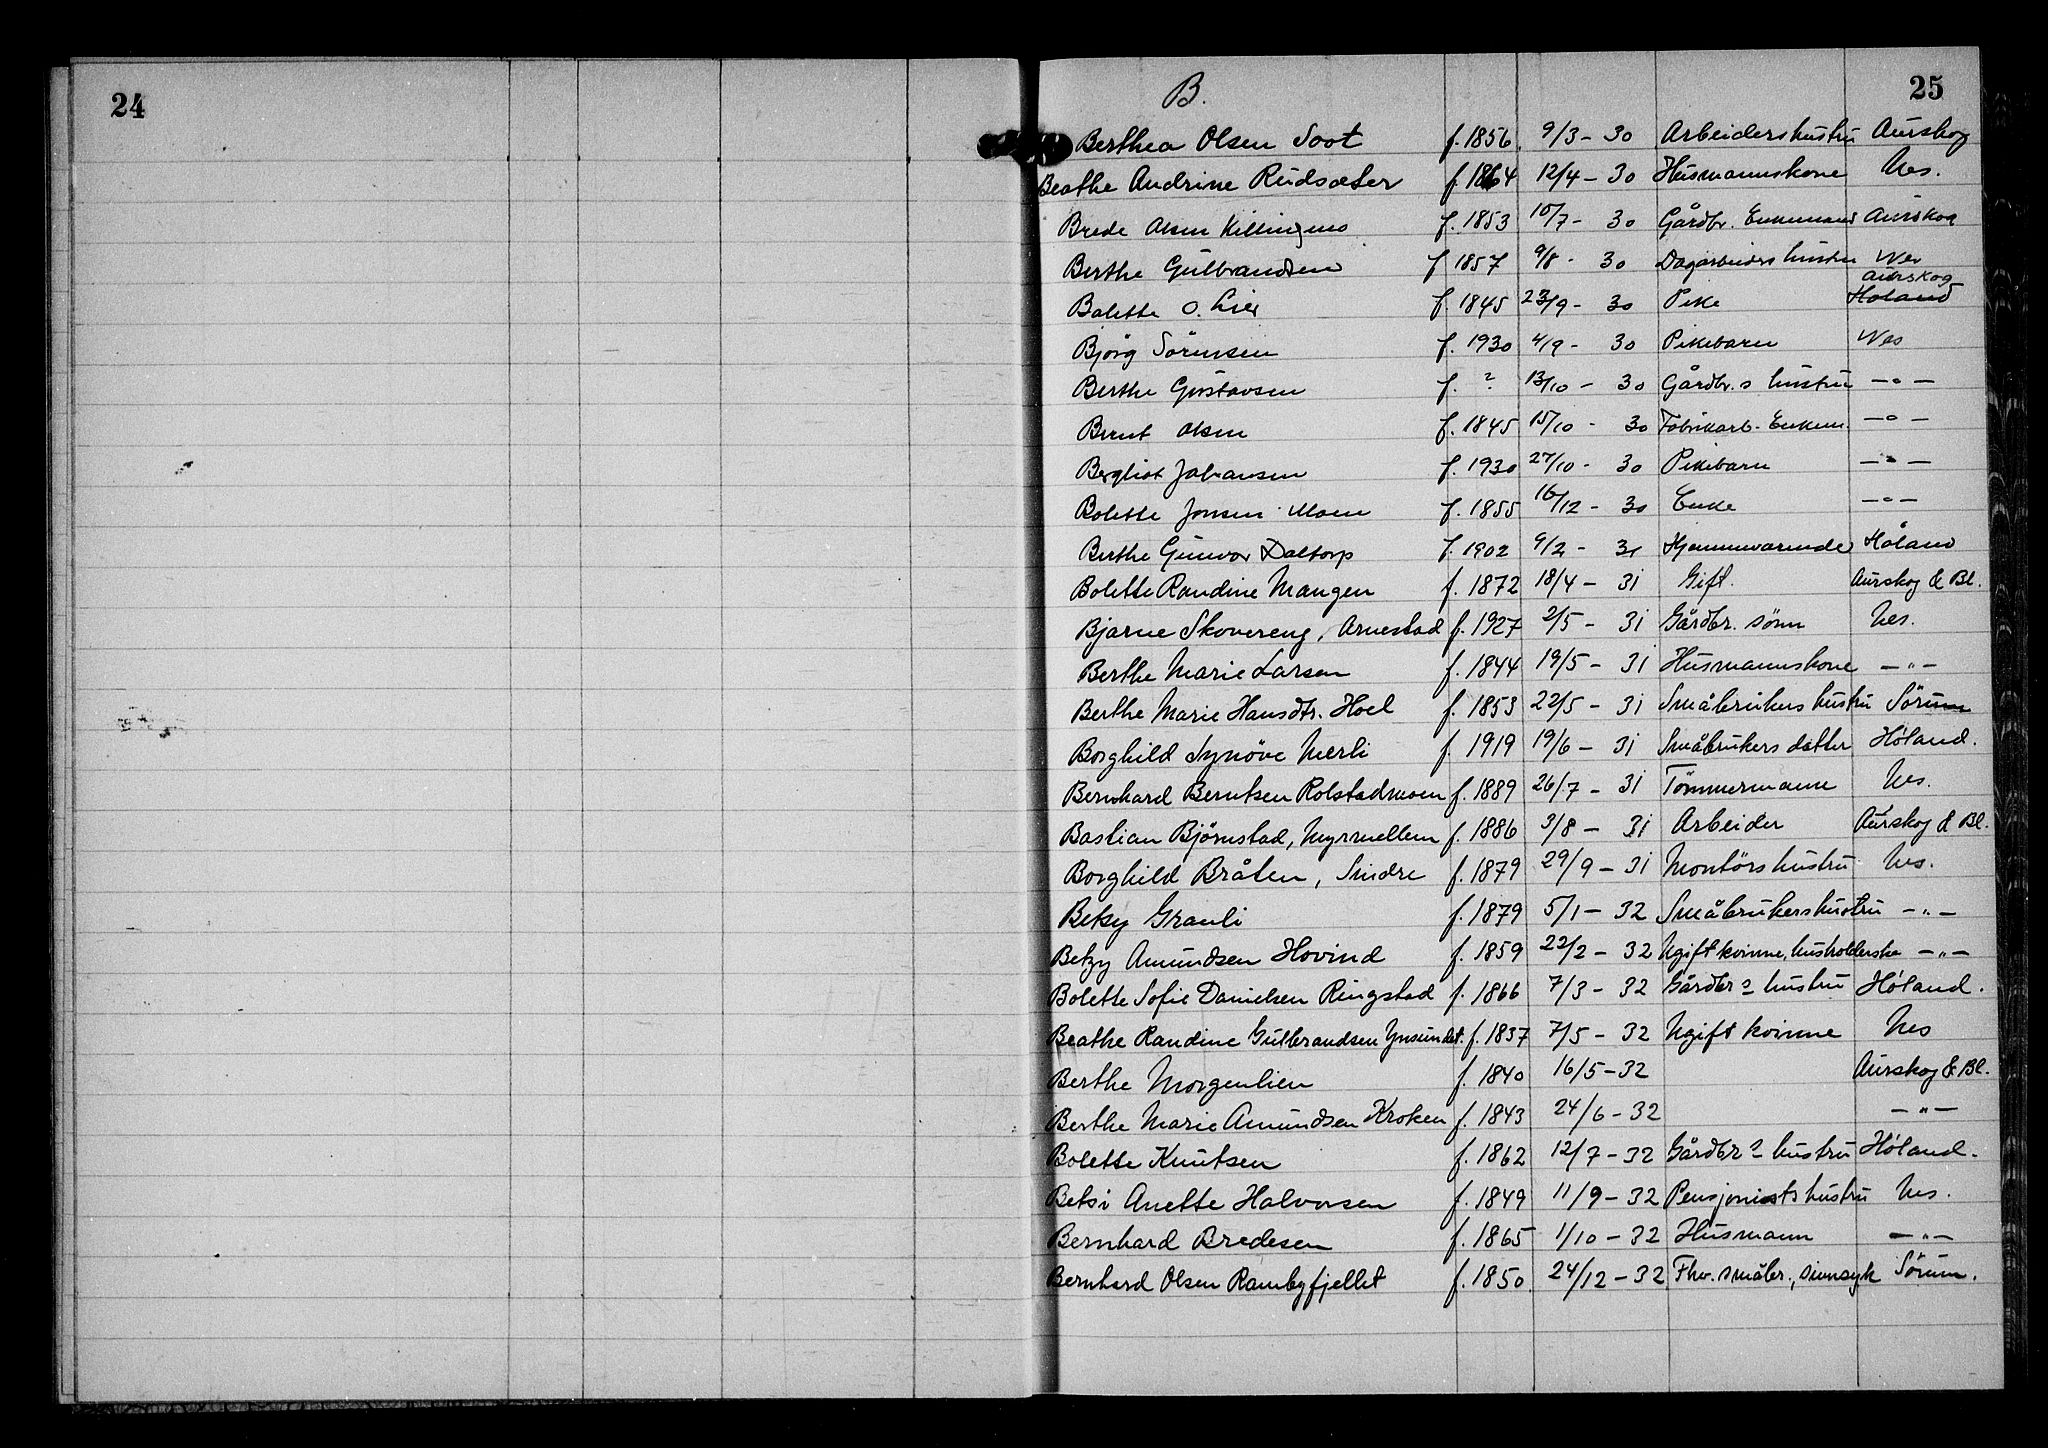 24
25
B.
Berthea Olsen Soot f. 1856 9/3 - 30 Arbeidershustru Aurskog
Beathe Andrine Rudsæter f 1864 12/4 - 30 Husmannskone Nes.
Brede Olsen Killingmo f. 1853 10/7 - 30 Gårdbr. Enkemand Aurskog
Berthe Gulbrandsen f 1857 9/8 - 30 Dagarbeiders hustru Nes
Aurskog
Bolette O. Lier f. 1845 23/9 - 30 Pike Høland
Bjørg Sørensen f. 1930 4/9 - 30 Pikebarn Nes
Berthe Gustavsen f. ? 13/10 - 30 Gårdbr.s hustru —"—
Bernt Olsen f. 1845 15/10 - 30 Fabrikarb. Enkem. —"—
Bergliot Johansen f. 1930 27/10 - 30 Pikebarn —"—
Bolette Jonsen Moen f. 1855 16/12 - 30 Enke —"—
Berthe Gunvor Daltorp f. 1902 9/2 - 31 Hjemmeværende Høland
Bolette Randine Mangen f. 1872 18/4 - 31 Gift. Aurskog & Bl.
Bjarne Skovereng, Arnestad f. 1927 2/5 - 31 Gårdbr. sønn Nes.
Berthe Marie Larsen f. 1844 19/5 - 31 Husmannskone —"—
Berthe Marie Hansdtr. Hoel f. 1853 22/5 - 31 Småbrukers hustru Sørum
Borghild Synøve Merli f. 1919 19/6 - 31 Småbrukers datter Høland.
Bernhard Berntsen Rolstadmoen f. 1889 26/7 - 31 Tømmermann Nes.
Bastian Bjørnstad, Myrmellem f. 1886 3/8 - 31 Arbeider Aurskog & Bl.
Borghild Bråten, Sindre f. 1879 29/9 - 31 Montørs hustru Nes.
Betsy Granli f. 1879 5/1 - 32 Småbrukershustru —"—
Betzy Amundsen Hovind f. 1859 22/2 - 32 Ugift kvinne, husholderske —"—
Bolette Sofie Danielsen Ringstad f. 1866 7/3 - 32 Gårdbrs hustru Høland.
Beathe Randine Gulbrandsen Ynsundet. f. 1837 7/5 - 32 Ugift kvinne Nes
Berthe Morgenlien f. 1840 16/5 - 32 Aurskog & Bl.
Berthe Marie Amundsen Kroken f. 1843 24/6 - 32 —"—
Bolette Knutsen f. 1862 12/7 - 32 Gårdbrs hustru Høland.
Betsi Anette Halvorsen f. 1849 11/9 - 32 Pensjonists hustru Nes.
Bernhard Bredesen f. 1865 1/10 - 32 Husmann —"—
Bernhard Olsen Rambyfjellet f. 1850. 24/12 - 32 Fhv. småbr., sinnsyk Sørum.